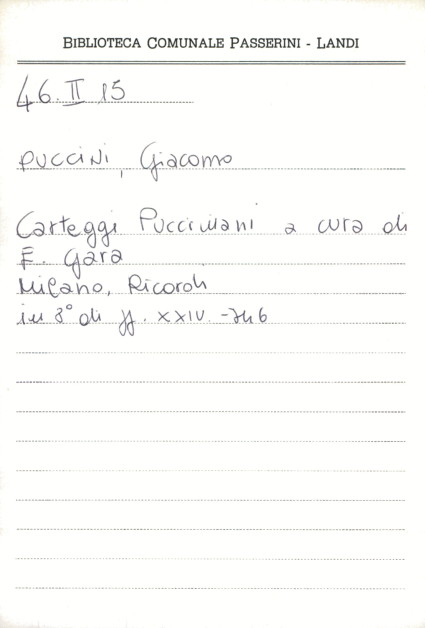 BIBLIOTECA COMUNALE PASSERINI - LANDI
46. II 15
PUCCINI, Giacomo
Carteggi Pucciniani a cura di
E. Gara
Milano, Ricordi
in 8° di ff. XXIV. -746